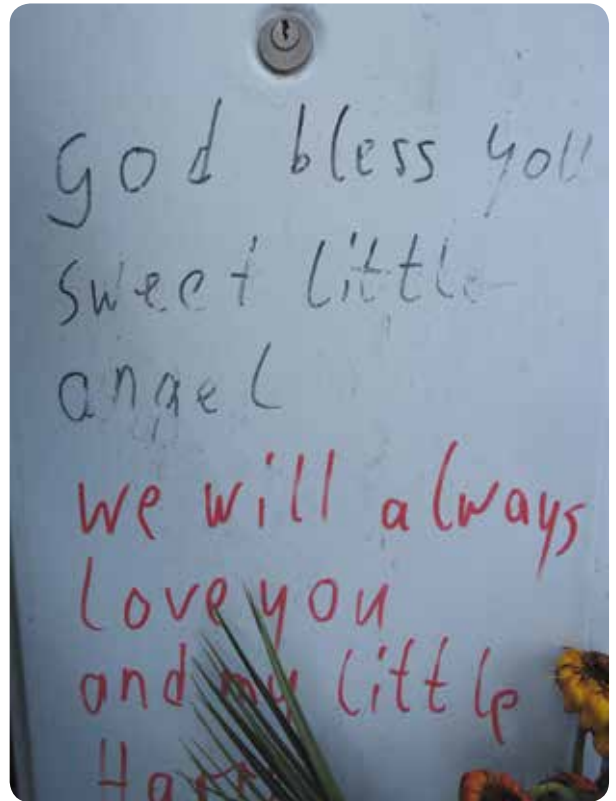 god bless you
sweet little
angel
we will always
love you
and my little